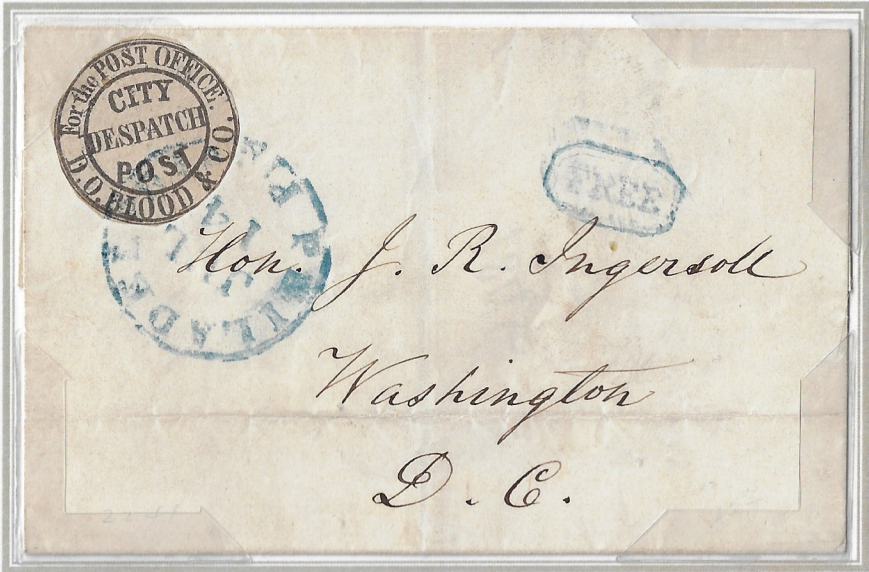 For the POST OFFICE.
CITY
DESPATCH
POST
D.O. BLOOD & CO.
FREE
Hon. J. R. Ingersoll
Washington
D. C.